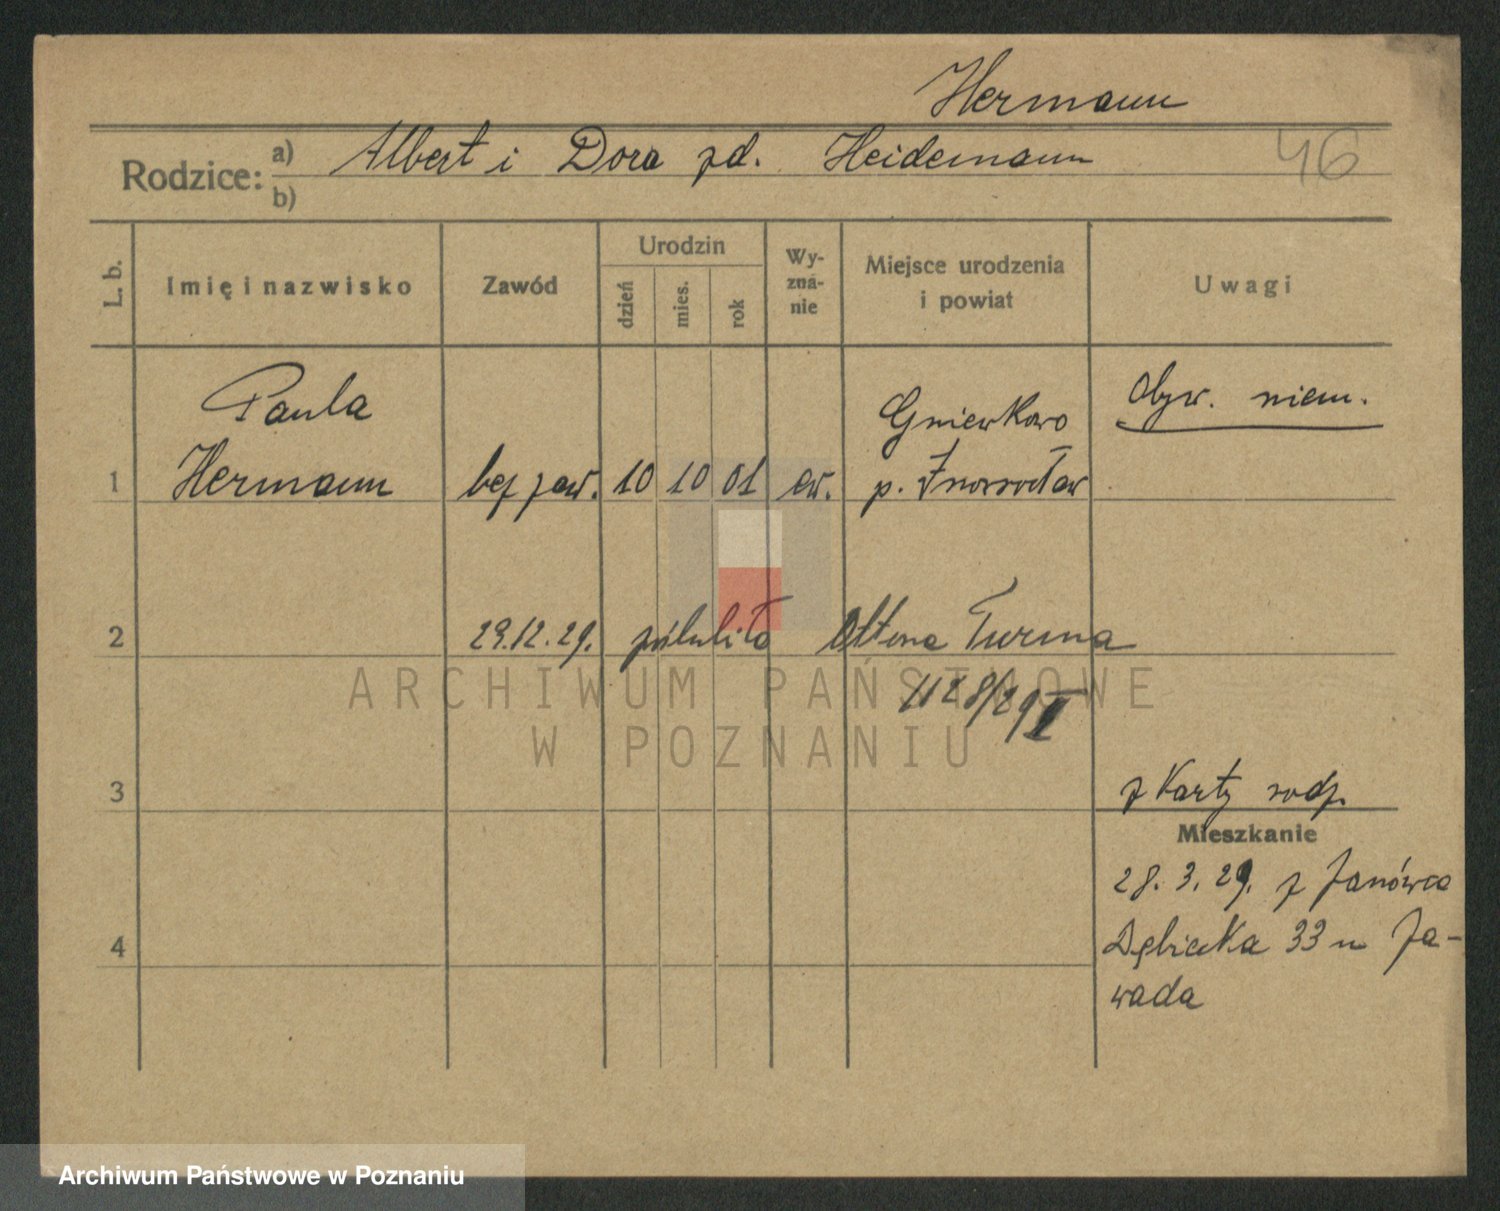 Hermann
Rodzice: a) Albert i Dora zd. Heidemann 46
b)
L. b. Imię i nazwisko Zawód Urodzin dzień mies. rok Wyznanie Miejsce urodzenia i powiat Uwagi
Paula Gniewkowo Obyw. niem.
1 Hermann bez zaw. 10 10 01 ew. p. Inowrocław
2 29.12.29. poślubiła Ottona Turma
1128/29 I
ARCHIWUM PAŃSTWOWE
W POZNANIU
3 z karty rodz.
Mieszkanie
28. 3. 29. z Janówca
4 Dębiecka 33 u Za-
wada
Archiwum Państwowe w Poznaniu